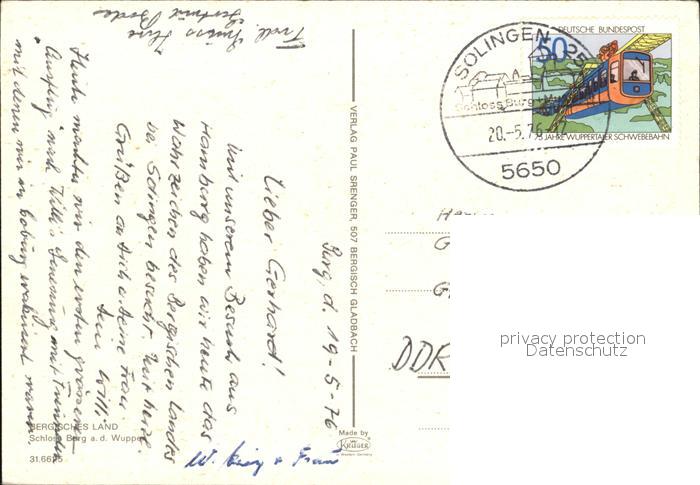 Burg, d. 19-5-76
Lieber Gerhard!
Mit unserem Besuch aus
Hamburg haben wir heute das
Wahrzeichen des Bergischen Landes
bei Solingen besucht. Mit herzl.
Grüßen an Dich u. deine Frau
Dein Willi
Heute machten wir den ersten grösseren
Ausflug nach Willi's Genesung mit Freunden
mit denen wir in Coburg waren.
Frdl. Grüsse
W. + Frau
DEUTSCHE BUNDESPOST
50
75 JAHRE WUPPERTALER SCHWEBEBAHN
SOLINGEN 25
Schloss Burg
20.-5.76
5650
VERLAG PAUL SRENGER, 507 BERGISCH GLADBACH
DDR
privacy protection
Datenschutz
BERGISCHES LAND
Schloss Burg a. d. Wupper
Made by
KRÜGER